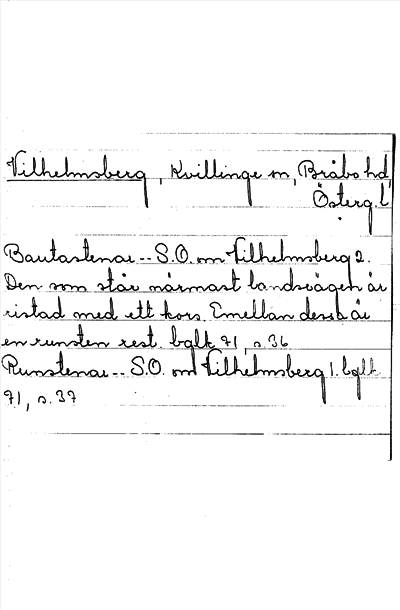 Vilhelmsberg, Kvillinge sn, Bråbo hd,
Österg. l.
Bautastenar -- S.O. om Vilhelmsberg 2.
Den som står närmast landsvägen är
ristad med ett kors. Emellan dessa är
en runsten rest. bglk 71, s. 36
Runstenar -- S.O. om Vilhelmsberg 1. bglk
71, s. 37